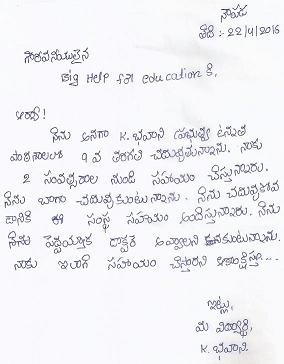 నౌపడ
తేది :- 22/4/2016
గౌరవనీయులైన
Big Help for education కి,
అయ్యా!
నేను అనగా K. భవాని ప్రభుత్వ ఉన్నత
పాఠశాలలో 9 వ తరగతి చదువుతున్నాను. నాకు
2 సంవత్సరాల నుండి సహాయం చేస్తున్నారు.
నేను బాగా చదువుకుంటున్నాను. నేను చదువుకోవ
డానికి ఈ సంస్థ సహాయం అందిస్తున్నారు. నేను
నేను పెద్దయ్యాక డాక్టర్ అవ్వాలని అనుకుంటున్నాను.
నాకు ఇలాగే సహాయం చేస్తారని ఆకాంక్షిస్తూ....
ఇట్లు,
మీ విద్యార్థి,
K. భవాని.